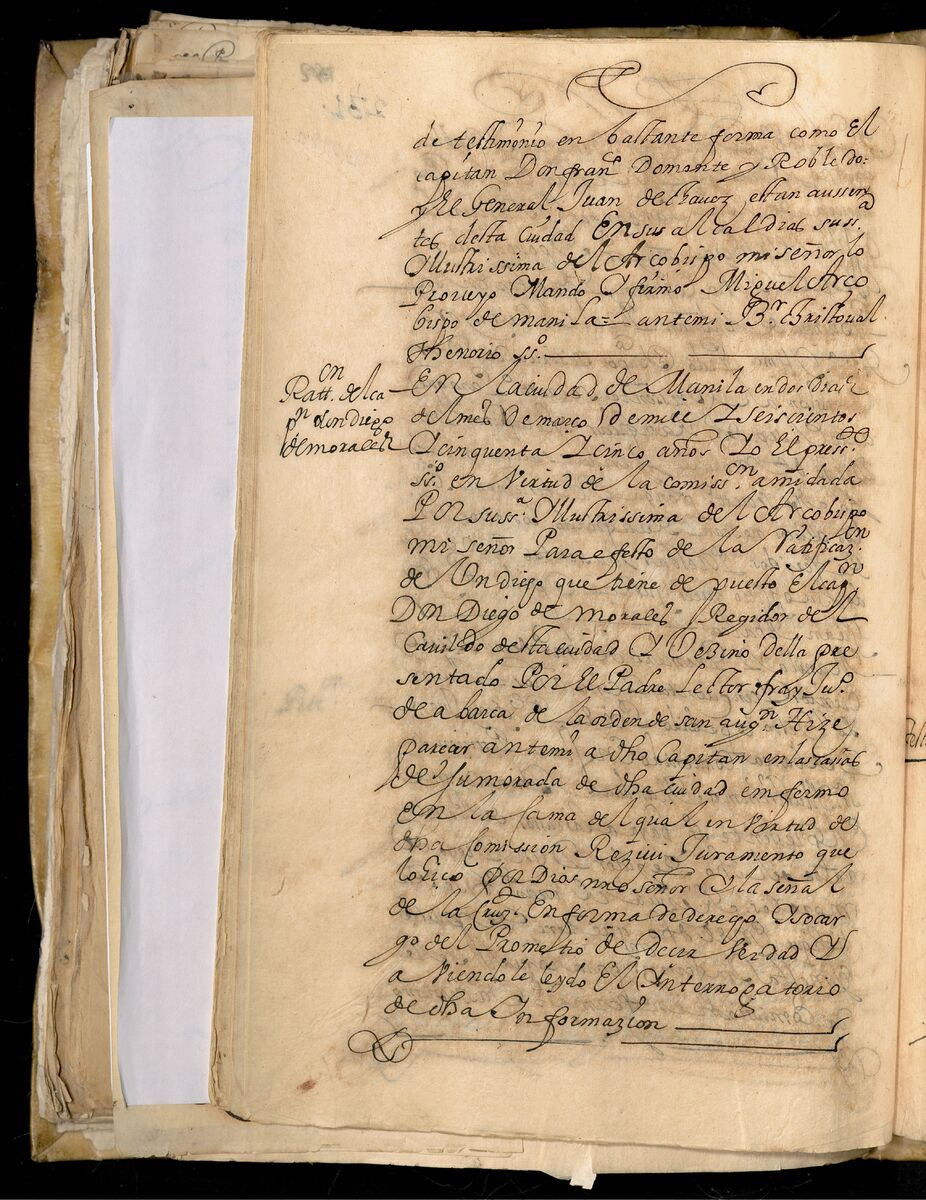 de testimonio en bastante forma como El
capitan Don fran.co Domante y Robledo.
y el General Juan de chavez estan aussen
tes desta ciudad En sus alcaldias su ss.a
Yllustrissima del Arcobispo mi señor lo
Proveyo Mando Y firmo Miguel Arço
bispo de manila = ante mi B.r Christoual
thenorio ss.o
Ratt.cn del ca
p.n don diego
de morales
EN la ciudad de Manila en dos dias
del mes De março De mill Y seiscientos
Y cinquenta Y cinco años Yo El press.te
ss.o en Virtud de la comiss.cn a mi dada
POR su ss.a Yllustrissima del Arcobispo
mi señor Para efecto de la Ratificaz.cn
de Un diego que tiene de puesto El cap.n
DON Diego de morales Regidor del
Cauildo desta ciudad Y Vezino della pre
sentado POR El Padre Lector fray Ju.o
de abarca de la orden de san aug.n Hize
parecer ante mi a dho Capitan en las casas
de su morada de dha ciudad emfermo
en la cama del qual en Virtud de
dha Comission Reziui Juramento que
lo hico POR Dios nro señor Y la señal
de la Cruz En forma de derecho Y so car
go del Prometio de decir Verdad Y
a Viendole leydo El Ynterrogatorio
de dha Ynformazion